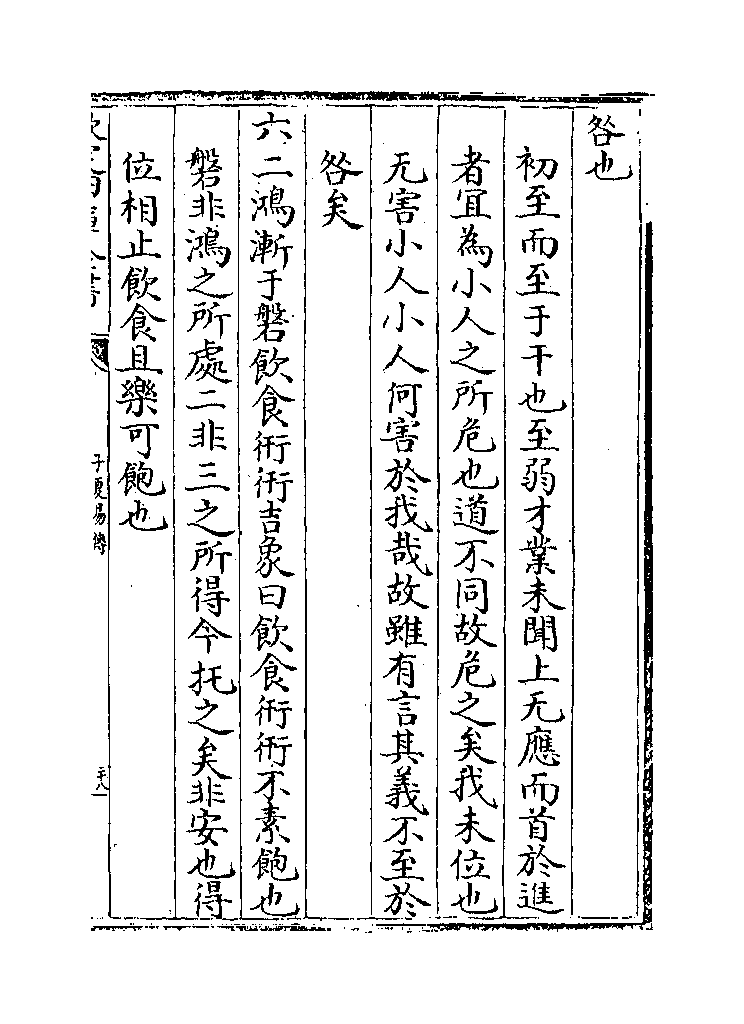 咎也
初至而至于干也至弱才業未聞上无應而首於進
者宜為小人之所危也道不同故危之矣我未位也
无害小人小人何害於我哉故雖有言其義不至於
咎矣
六二鴻漸于磐飲食衎衎吉象曰飲食衎衎不素飽也
磐非鴻之所處二非三之所得今托之矣非安也得
位相止飲食且樂可飽也
子夏易傳